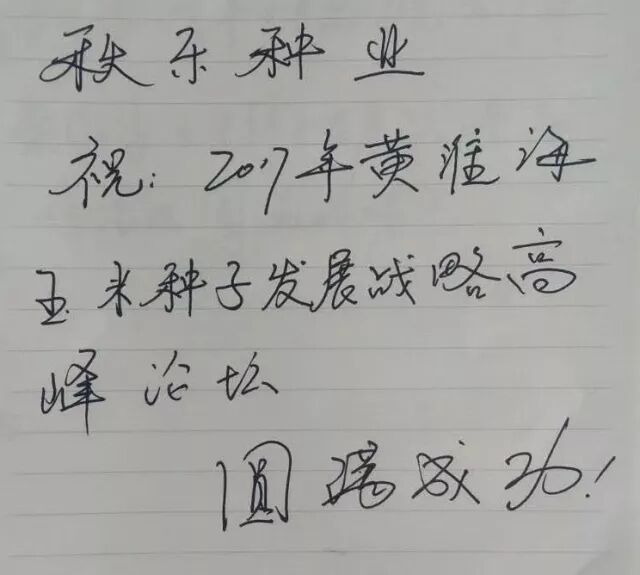 秋乐种业
祝：2017年黄淮海
玉米种子发展战略高
峰论坛
圆满成功！